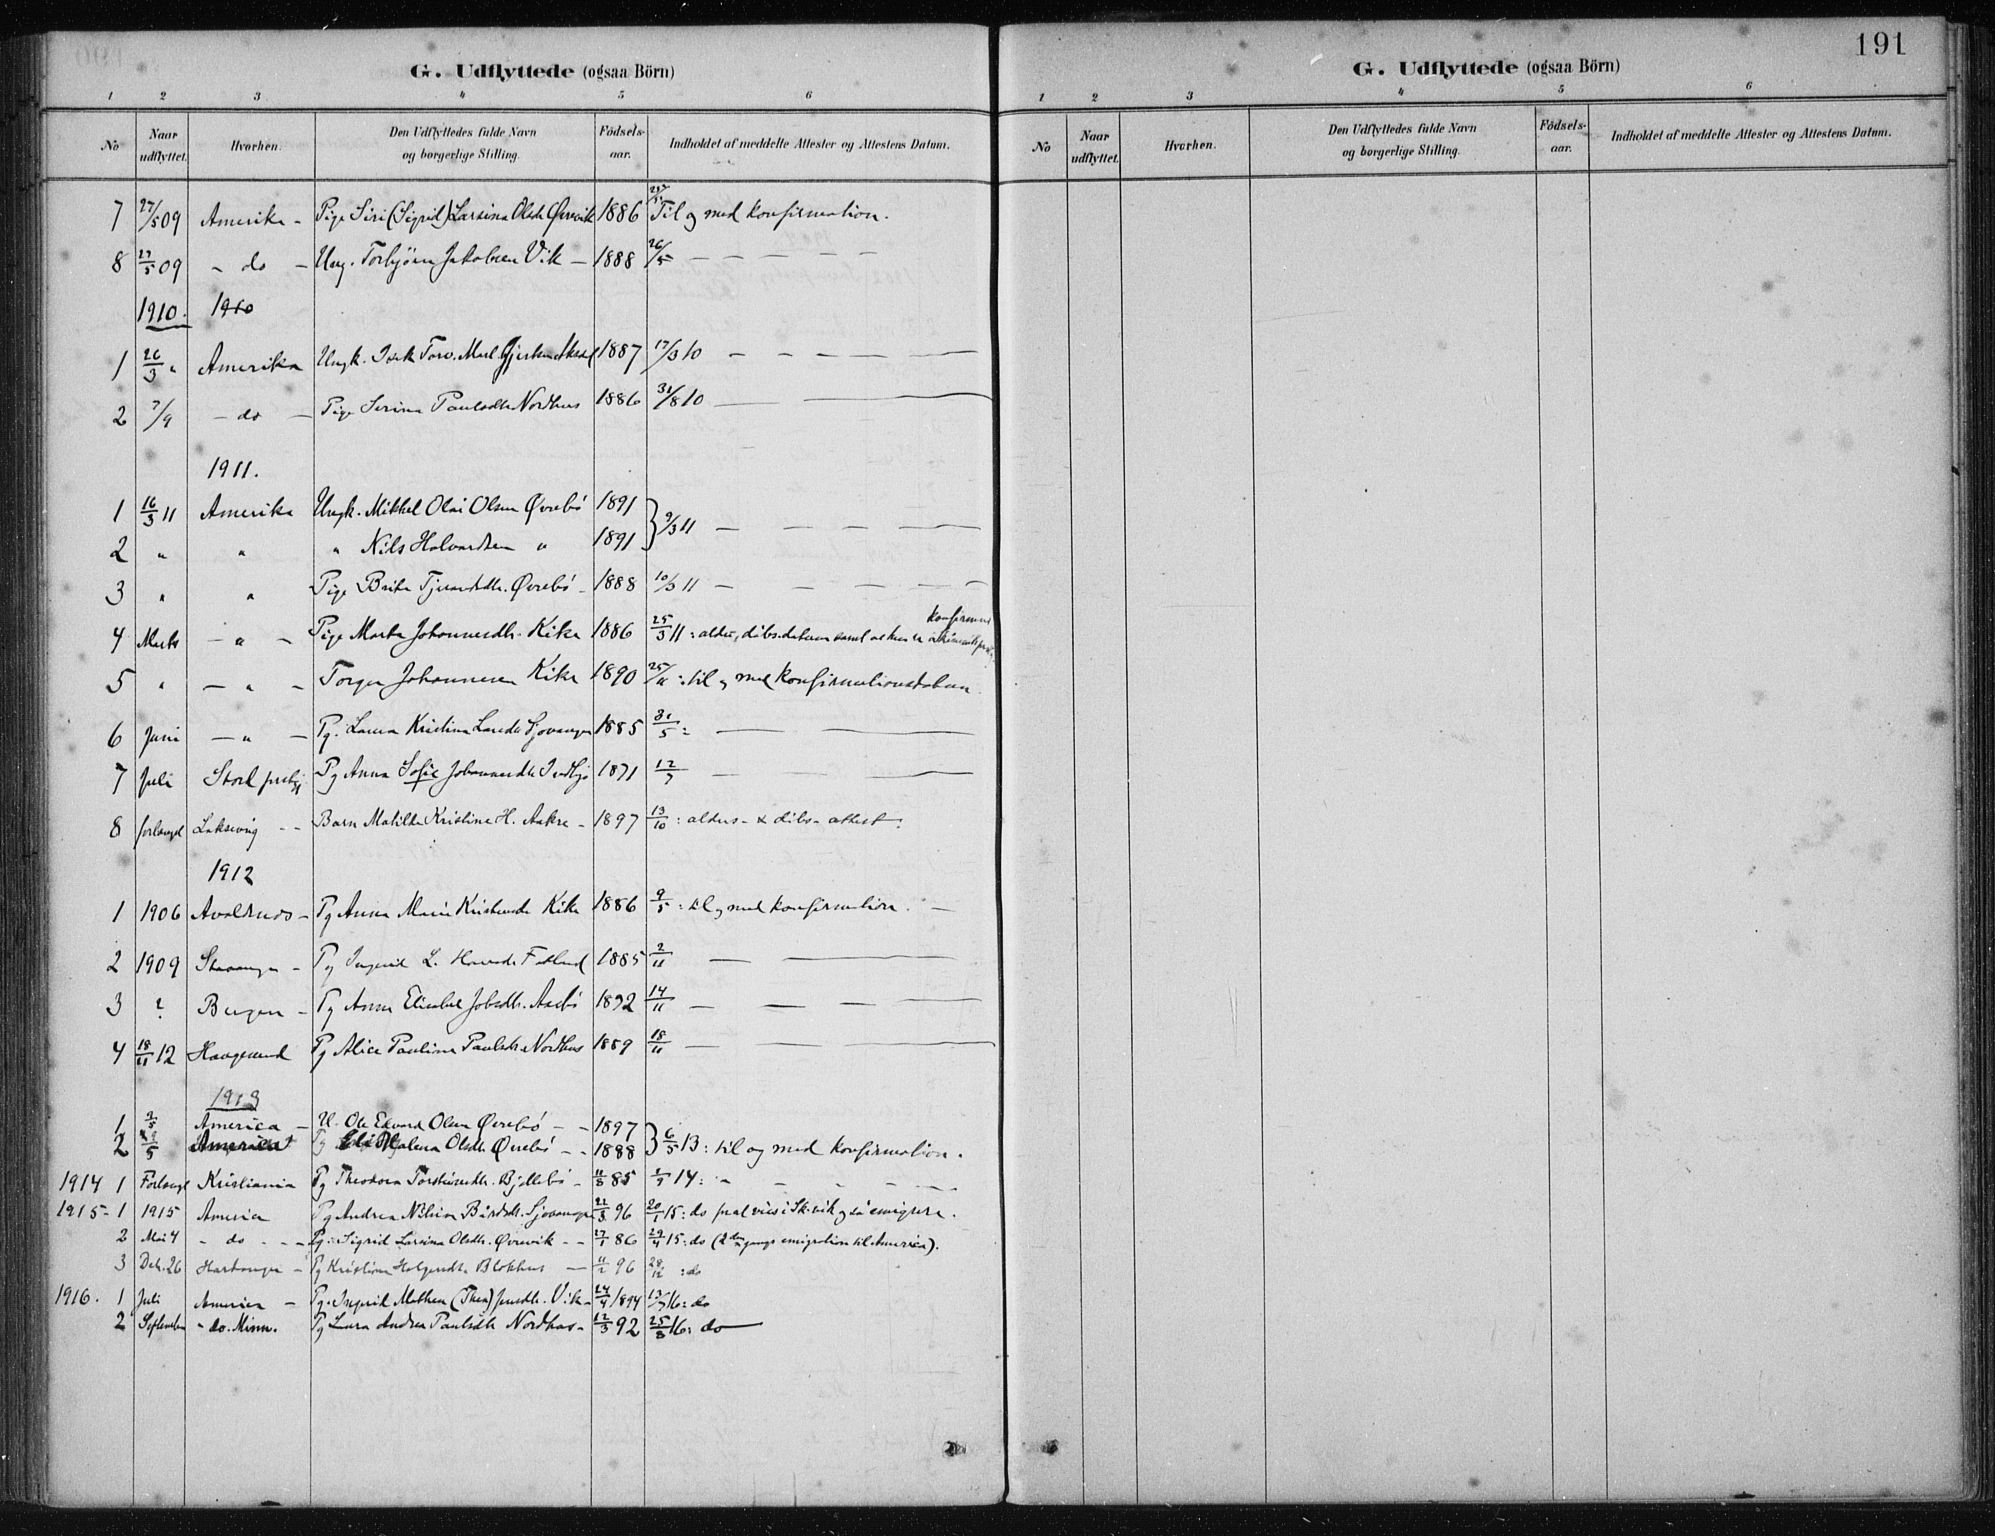 G. Udflyttede (ogsaa Börn)
1 2 3 4 5 6
No Naar udflyttet. Hvorhen. Den Udflyttedes fulde Navn og borgerlige Stilling. Födsels-aar. Indholdet af meddelte Attester og Attestens Datum.
7 27/5 09 Amerika - Pige Siri (Sigrid) Larsina Olsdr Øvrevik 1886 Til og med konfirmation.
8 27/5 09 - do - Ung. Torbjörn Jakobsen Vik - 1888 26/5 - - - - -
1910. 1910
1 26/3 " Amerika Ungk. 1887 17/3 10 - - - -
2 7/9 - do - Pige Serina Paulsdtr Nordhus 1886 31/8 10
1911.
1 16/3 11 Amerika Ungk. Mikkel Olai Olsen Øvrebö 1891
2 " " " Nils Halvardsen " 1891 } 9/3 11 - - - -
3 " " Pige Brita Tjerandsdtr. Øvrebö - 1888 10/3 11 - - - -
4 Marts - " - Pige Marta Johannesdtr. Kike 1886 25/3 11 : alder, dåbs-datum samt at hun er konfirmert
5 " - " - Torger Johannesen Kike 1890 25/11 : til og med konfirmationsdatum.
6 Juni - " - Pg. Laura Kristina Larsdtr Sjovangen 1885 31/5 :
7 Juli Stord prstgj Pg Anna Sofie Johannesdtr 1871 12/7
8 forlængst Laksevåg - - Barn Matilde Kristine H. Aakre - 1897 13/10 : alders- & dåbs-attest.
1912
1 1906 Avaldsnes - Pg Anna Marie Kristensdr Kike 1886 9/5 : til og med konfirmation. -
2 1909 Stavanger - Pg Ingerid L. Hansdr Fatland 1885 2/11
3 ? Bergen - Pg Anna Elisabet Jobsdtr. Aasbö 1892 14/11
4 18/11 12 Haugesund Pg Alice Pauline Paulsdtr Nordhus 1889 18/11
1913
1 9/5 America - U. Ole Edvard Olsen Øvrebö - - 1897
2 9/5 America Pg Malena Olsdtr. Øvrebö - - 1888 } 6/5 13 : til og med konfirmation.
1914 1 Forlængst Kristiania Pg Theodora Torsteinsdtr. Bjellebö - 11/8 85 14 : - - - - -
1915- 1 1915 America Pg Andrea Nilsina Bårdsdtr. Sjovangen 22/3 96 20/1 15 : do skal vies i Sk.vik og så emigrere.
2 Mai 4 - do - - - Pg. Sigrid Larsina Olsdtr. Øvrevik - - 27/1 86 29/4 15 : do (2den gangs emigration til America).
3 Dek. 26 Hardanger - Pg Kristiana Helgesdtr Blokhus - 11/2 96 28/12 : do
1916. 1 Juli America - Pg. Ingerid Mathea (Thea) Jensdtr. Vik - 24/4 1894 13/7 16: do
2 September - do. Minn. Pg Laura Andrea Paulsdtr Nordhus - 12/3 92 25/8 16: do
191
G. Udflyttede (ogsaa Börn)
1 2 3 4 5 6
No Naar udflyttet. Hvorhen. Den Udflyttedes fulde Navn og borgerlige Stilling. Födsels-aar. Indholdet af meddelte Attester og Attestens Datum.